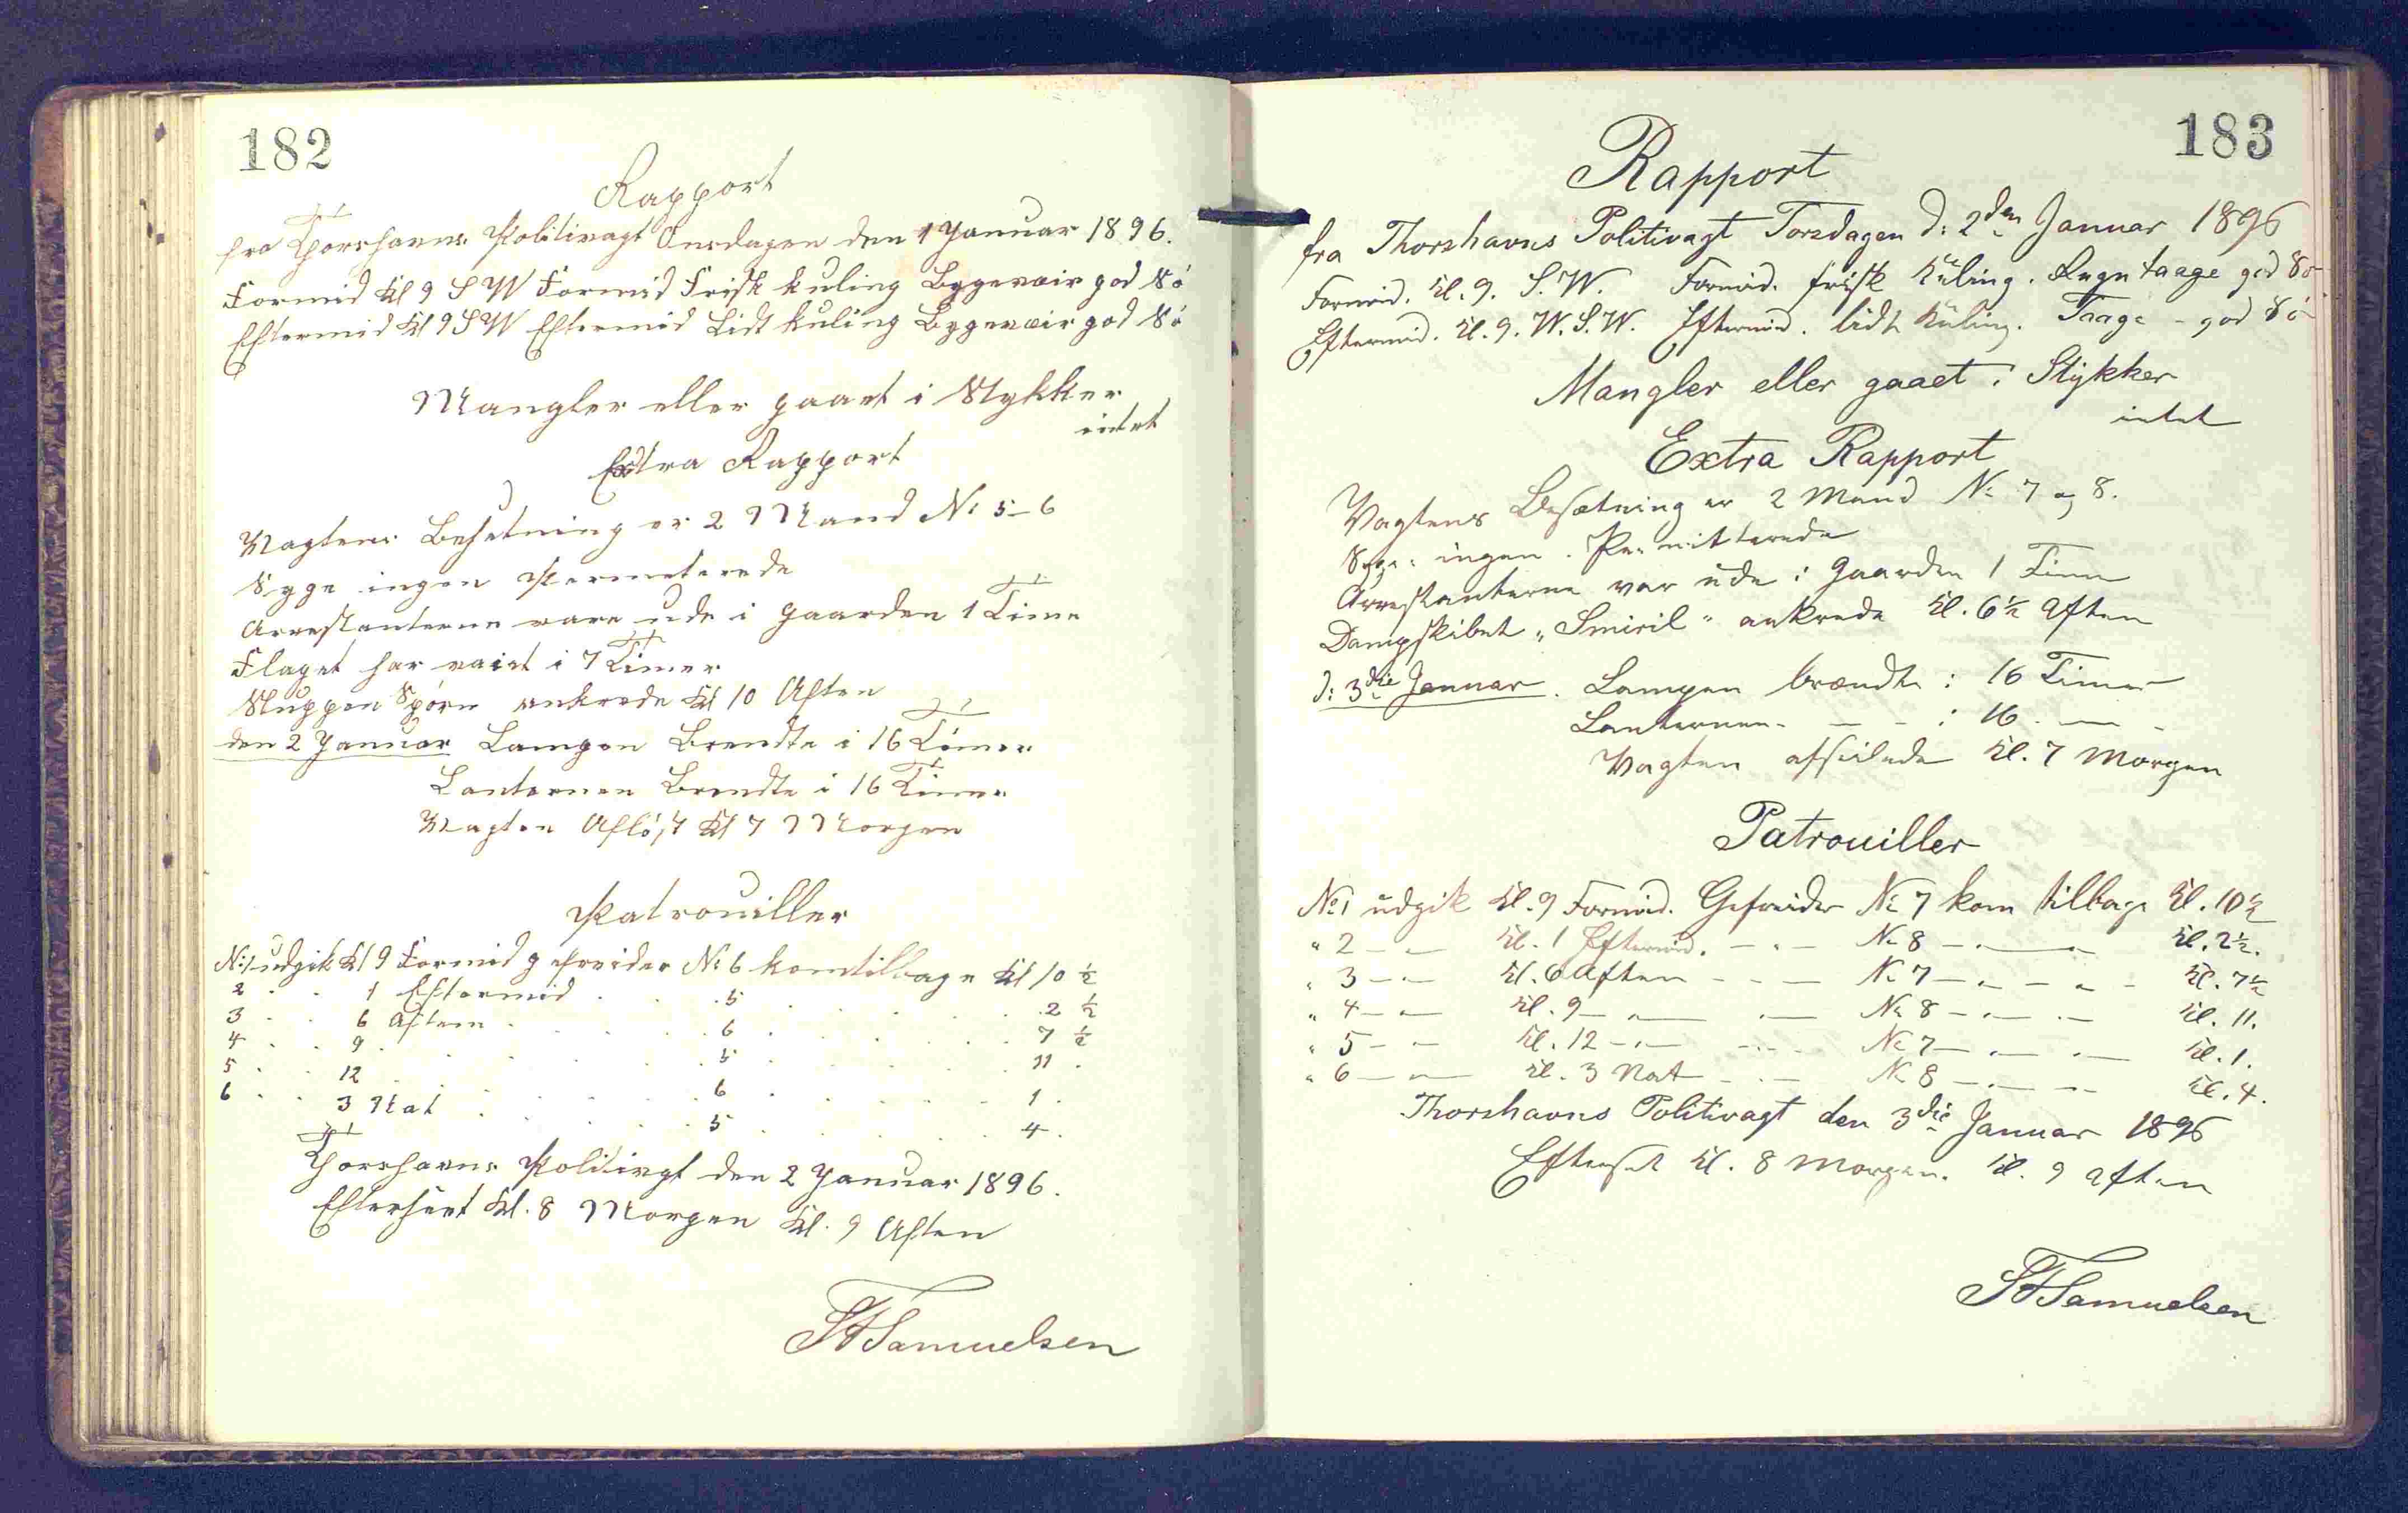 182
Rapport
fra Thorshavns Politivagt Onsdagen den 1 Januar 1896.
Formid Kl 9 S W Formid Frisk kuling Bygeveir god Sö
Eftermid Kl 9 S W Eftermid Lidt kuling Bygeveir god Sö
Mangler eller gaaet i Stykker
intet
Extra Rapport
Vagtens Besetning er 2 Mand No 5-6
Syge ingen Permeterede
Arrestanterne vare ude i Gaarden 1 Time
Flaget har vaiet i 7 Timer
Sluppen Spörn ankrede Kl 10 Aften
den 2 Januar Lampen Brendte i 16 Timer
Lanternen Brendte i 16 Timer
Vagten Aflöst Kl 7 Morgen
Patrouiller
No 1 udgik Kl 9 Formid gefreider No 6 kom tilbage Kl 10 ½
2 . . 1 Eftermid . . . 5 . . . . 2 ½
3 . . 6 Aften . . . 6 . . . . 7 ½
4 . . 9 . . . . 5 . . . . 11 .
5 . . 12 . . . . 6 . . . . 1 .
6 . . 3 Nat . . . . 5 . . . . 4 .
Thorshavns Politivgt den 2 Januar 1896.
Efterseet Kl. 8 Morgen Kl. 9 Aften
Samuelsen
183
Rapport
fra Thorshavns Politivagt Torsdagen d: 2den Januar 1896
Formid. Kl. 9. S. W. Formid. frisk Kuling. Regn taage god Sö
Eftermid. Kl. 9. W. S. W. Eftermid. lidt Kuling. Taage - god Sö
Mangler eller gaaet i Stykker
intet
Extra Rapport
Vagtens Besætning er 2 Mand No 7 og 8.
Syge: ingen. Permitterede
Arrestanterne var ude i Gaarden 1 Time
Dampskibet "Smiril" ankrede Kl. 6½ Aften
d: 3die Januar. Lampen brændte i 16 Timer
Lanternen - — - i 16 - — -
Vagten afløstede Kl. 7 Morgen
Patrouiller
No 1 udgik Kl. 9 Formid. Gefreider No 7 kom tilbage Kl. 10½
" 2 - — Kl. 1 Eftermid. - - - No 8 - — Kl. 2½.
" 3 - — Kl. 6 Aften - - - No 7 - - - Kl. 7½
" 4 - — Kl. 9 - — — No 8 - - - Kl. 11.
" 5 - - Kl. 12 - - - - No 7 - - - Kl. 1.
" 6 - — Kl. 3 Nat - - - No 8 - - - Kl. 4.
Thorshavns Politivagt den 3die Januar 1896
Efterset Kl. 8 Morgen. Kl. 9 Aften
Samuelsen